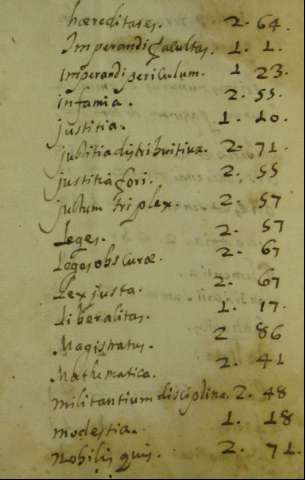 hæreditates. 2. 64.
Imperandi facultas. 1. 1.
imperandi periculum. 1 23.
infamia. 2. 55.
justitia. 1. 10.
justitia distributiua. 2. 71.
justitia fori. 2. 55
justum triplex. 2. 57
Leges. 2. 57
Leges obscuræ. 2. 67
Lex justa. 2. 67
Liberalitas. 1. 17.
Magistratus. 2 86
Mathematica. 2. 41
militantium disciplina. 2. 48
modestia. 1. 18
nobilis quis. 2. 71.